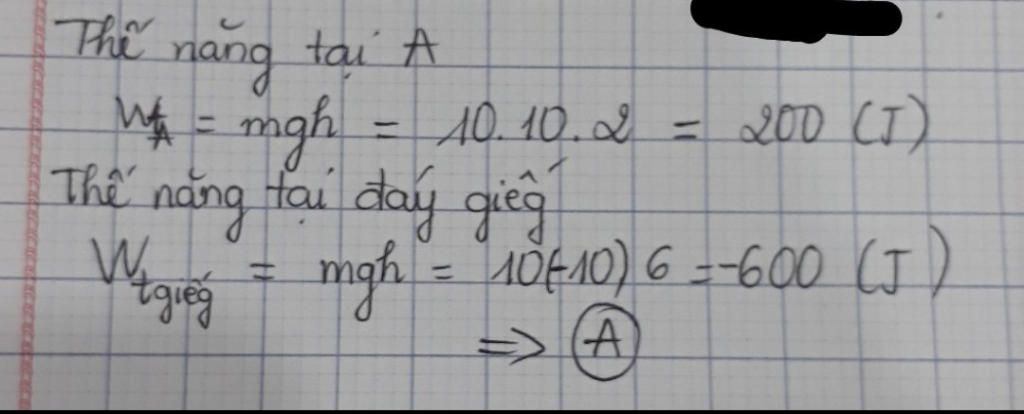 Thế năng tại A
WtA = mgh = 10.10.2 = 200 (J)
Thế năng tại đáy giếg
Wtgiếg = mgh = 10(-10) 6 = -600 (J)
=> A